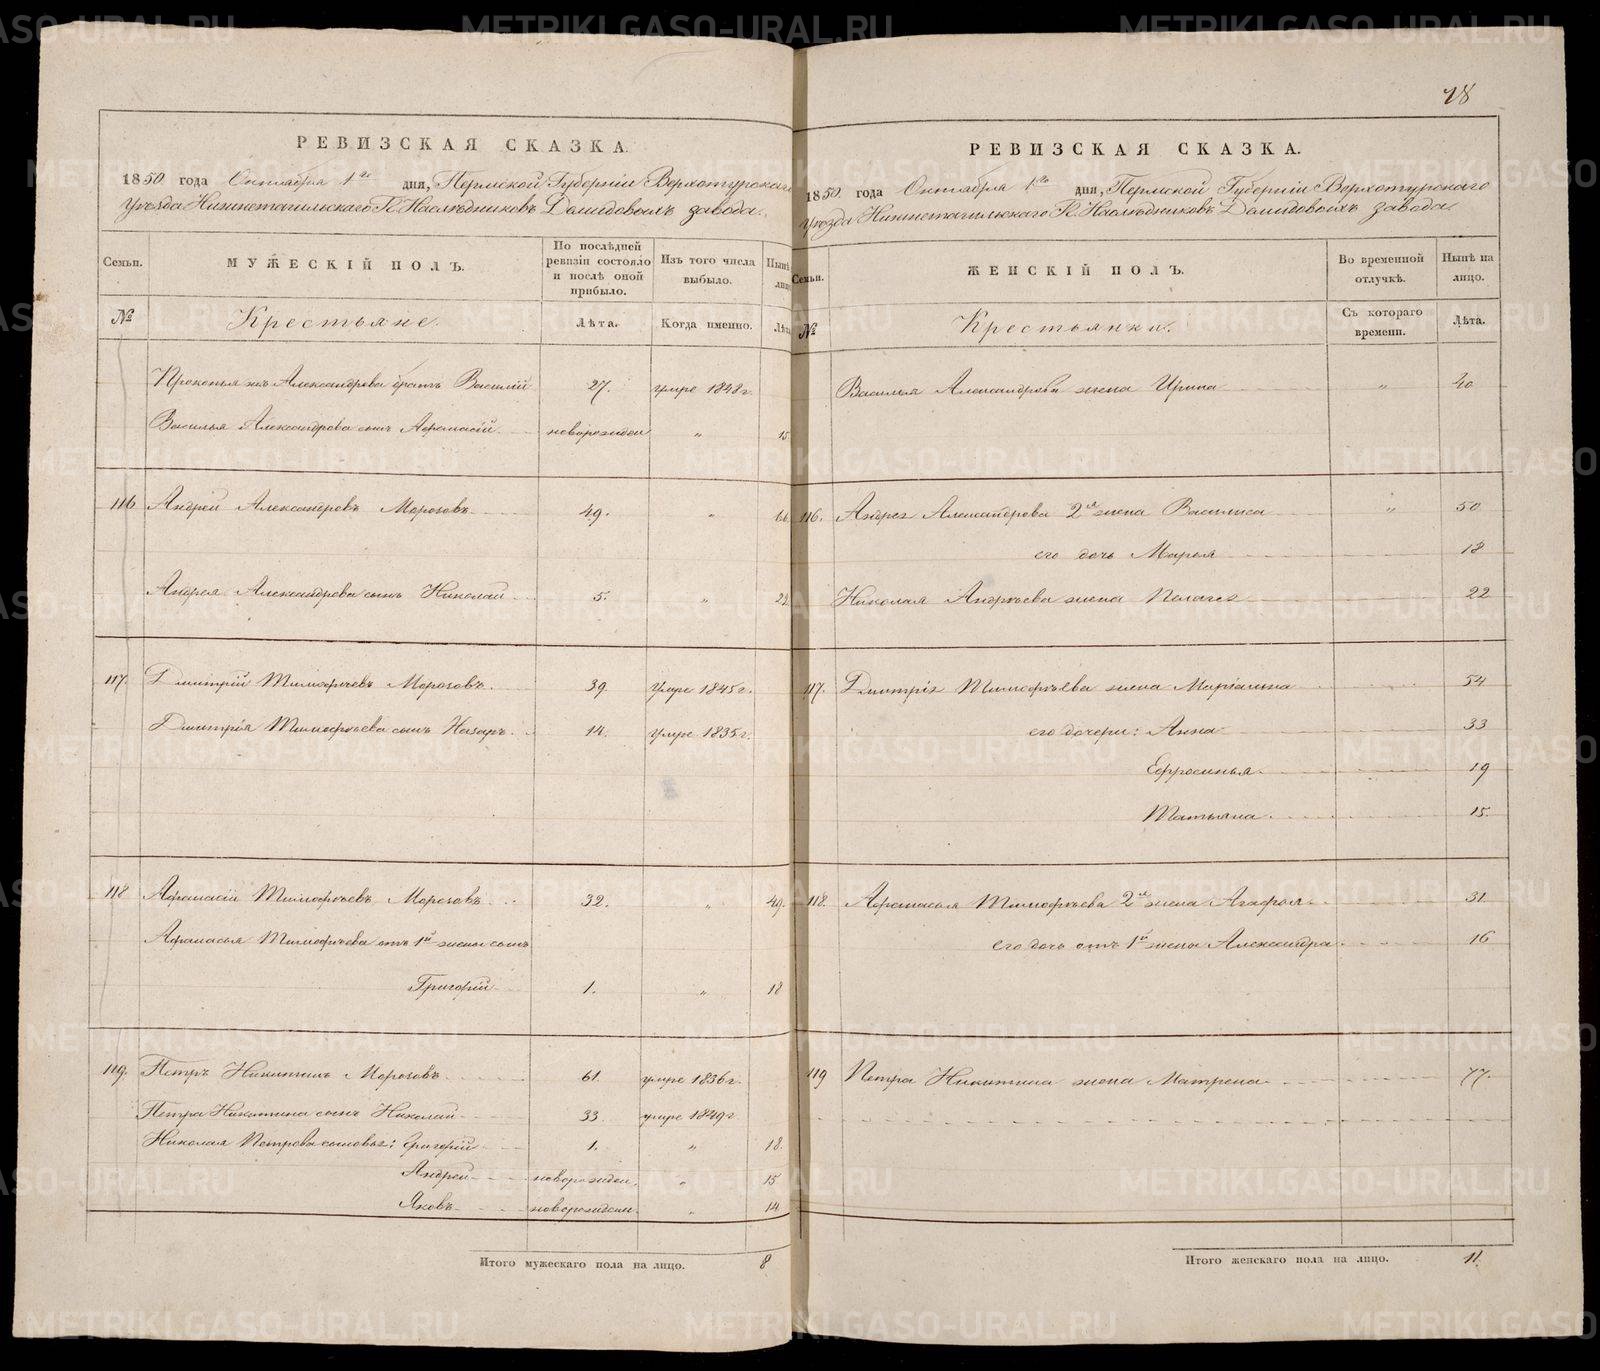 78
РЕВИЗСКАЯ СКАЗКА.
1850 года Октября 1го дня, Пермской Губерніи Верхотурскаго
Уѣзда Нижнетагильскаго Гг. Наслѣдниковъ Демидовыхъ завода.
Семьи. МУЖЕСКІЙ ПОЛЪ. По послѣдней ревизіи состояло и послѣ оной прибыло. Изъ того числа выбыло. Нынѣ лицо
№ Крестьяне. Лѣта. Когда именно. Лѣта
Прокопья жъ Александрова братъ Василій 27. умре 1848 г.
Василья Александрова сынъ Афанасій новорожден " 15
116 Андрей Александровъ Морозовъ 49. "
Андрея Александрова сынъ Николай 5. " 22
117. Дмитрій Тимофѣевъ Морозовъ. 39. умре 1845 г.
Дмитрія Тимофѣева сынъ Назаръ. 14. умре 1835 г.
118 Афанасій Тимофѣевъ Морозовъ 32. " 49
Афанасья Тимофѣева отъ 1й жены сынъ
Григорій 1. " 18
119. Петръ Никитинъ Морозовъ 61. умре 1836 г.
Петра Никитина сынъ Николай 33 умре 1849 г
Николая Петрова сыновья: Григорій 1. " 18.
Андрей новорожден. " 15
Яковъ новорожден. " 14
Итого мужескаго пола на лицо. 8
РЕВИЗСКАЯ СКАЗКА.
1850 года Октября 1го дня, Пермской Губерніи Верхотурскаго
Уѣзда Нижнетагильскаго Гг. Наслѣдниковъ Демидовыхъ завода.
Семьи. ЖЕНСКІЙ ПОЛЪ. Во временной отлучкѣ. Нынѣ на лицо.
№ Крестьянки. Съ котораго времени. Лѣта.
Василья Александрова жена Ирина " 40
116. Андрея Александрова 2я жена Василиса " 50
его дочь Марья 18
Николая Андрѣева жена Пелагея 22
117. Дмитрія Тимофѣева жена Маріанна 54
его дочери: Анна 33
Ефросинья 19
Татьяна 15.
118. Афанасья Тимофѣева 2я жена 31.
его дочь отъ 1й жены Александра 16
119 Петра Никитина жена Матрена 77.
Итого женскаго пола на лицо. 11.
METRIKI.GASO-URAL.RU